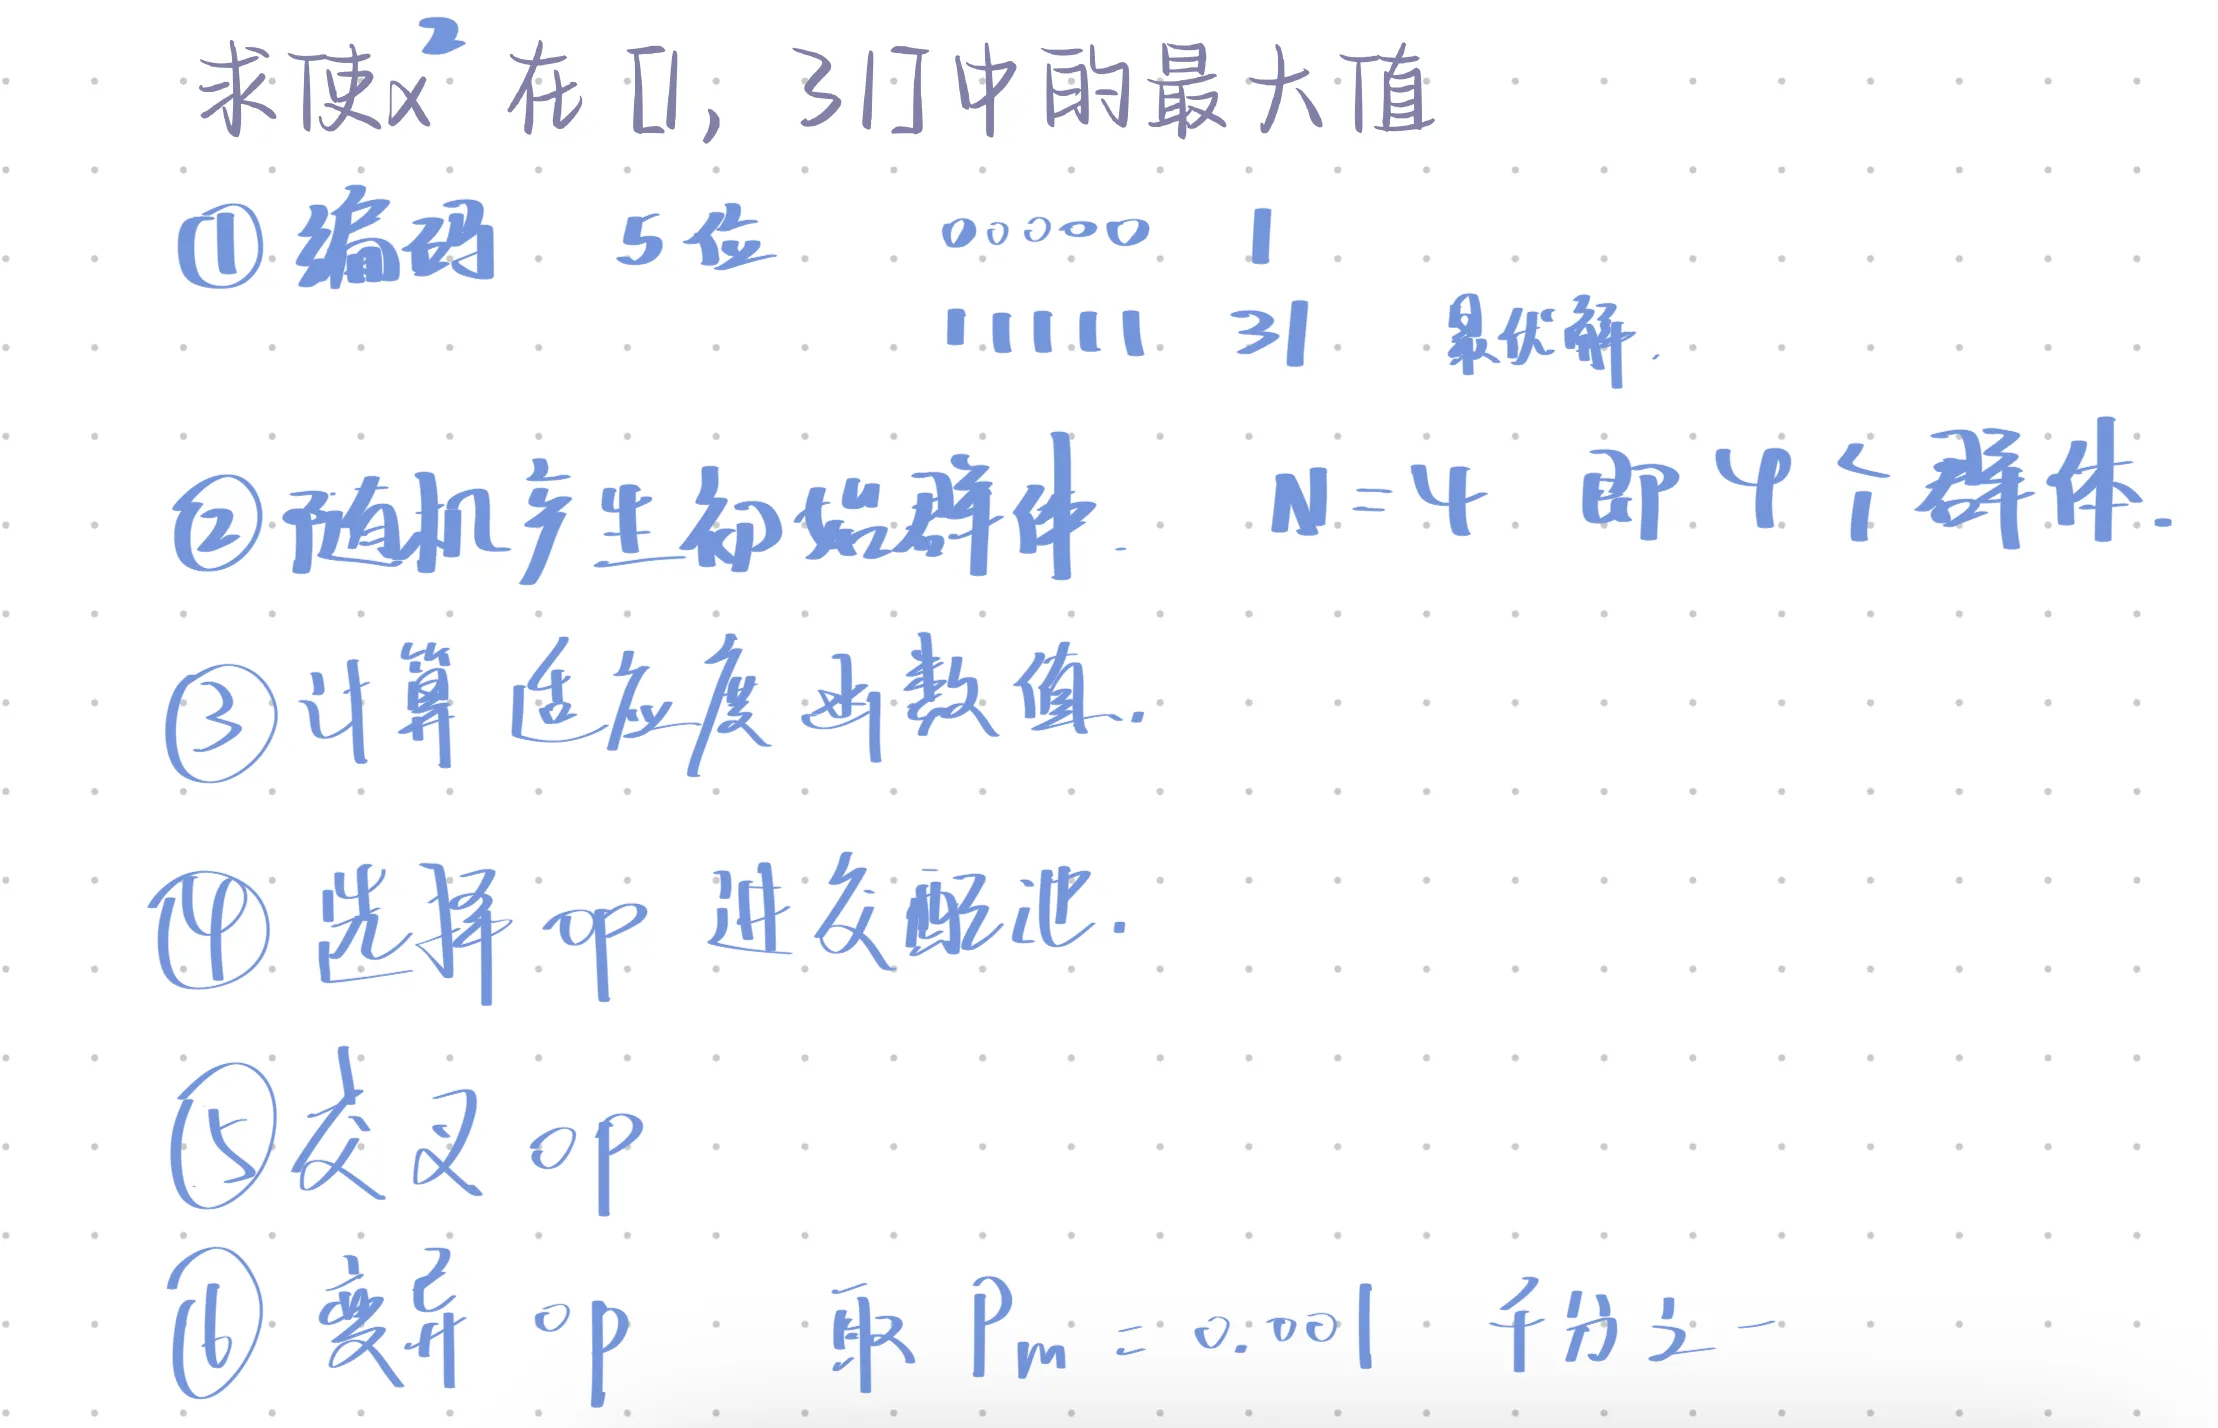 求使x² 在 [1, 31] 中的最大值
① 编码 5位 00000 1
11111 31 最优解.
② 随机产生初始群体. N=4 即4个群体.
③ 计算适应度函数值.
④ 选择op 进交配池.
⑤ 交叉 op
⑥ 变异 op 取 Pm = 0.001 千分之一